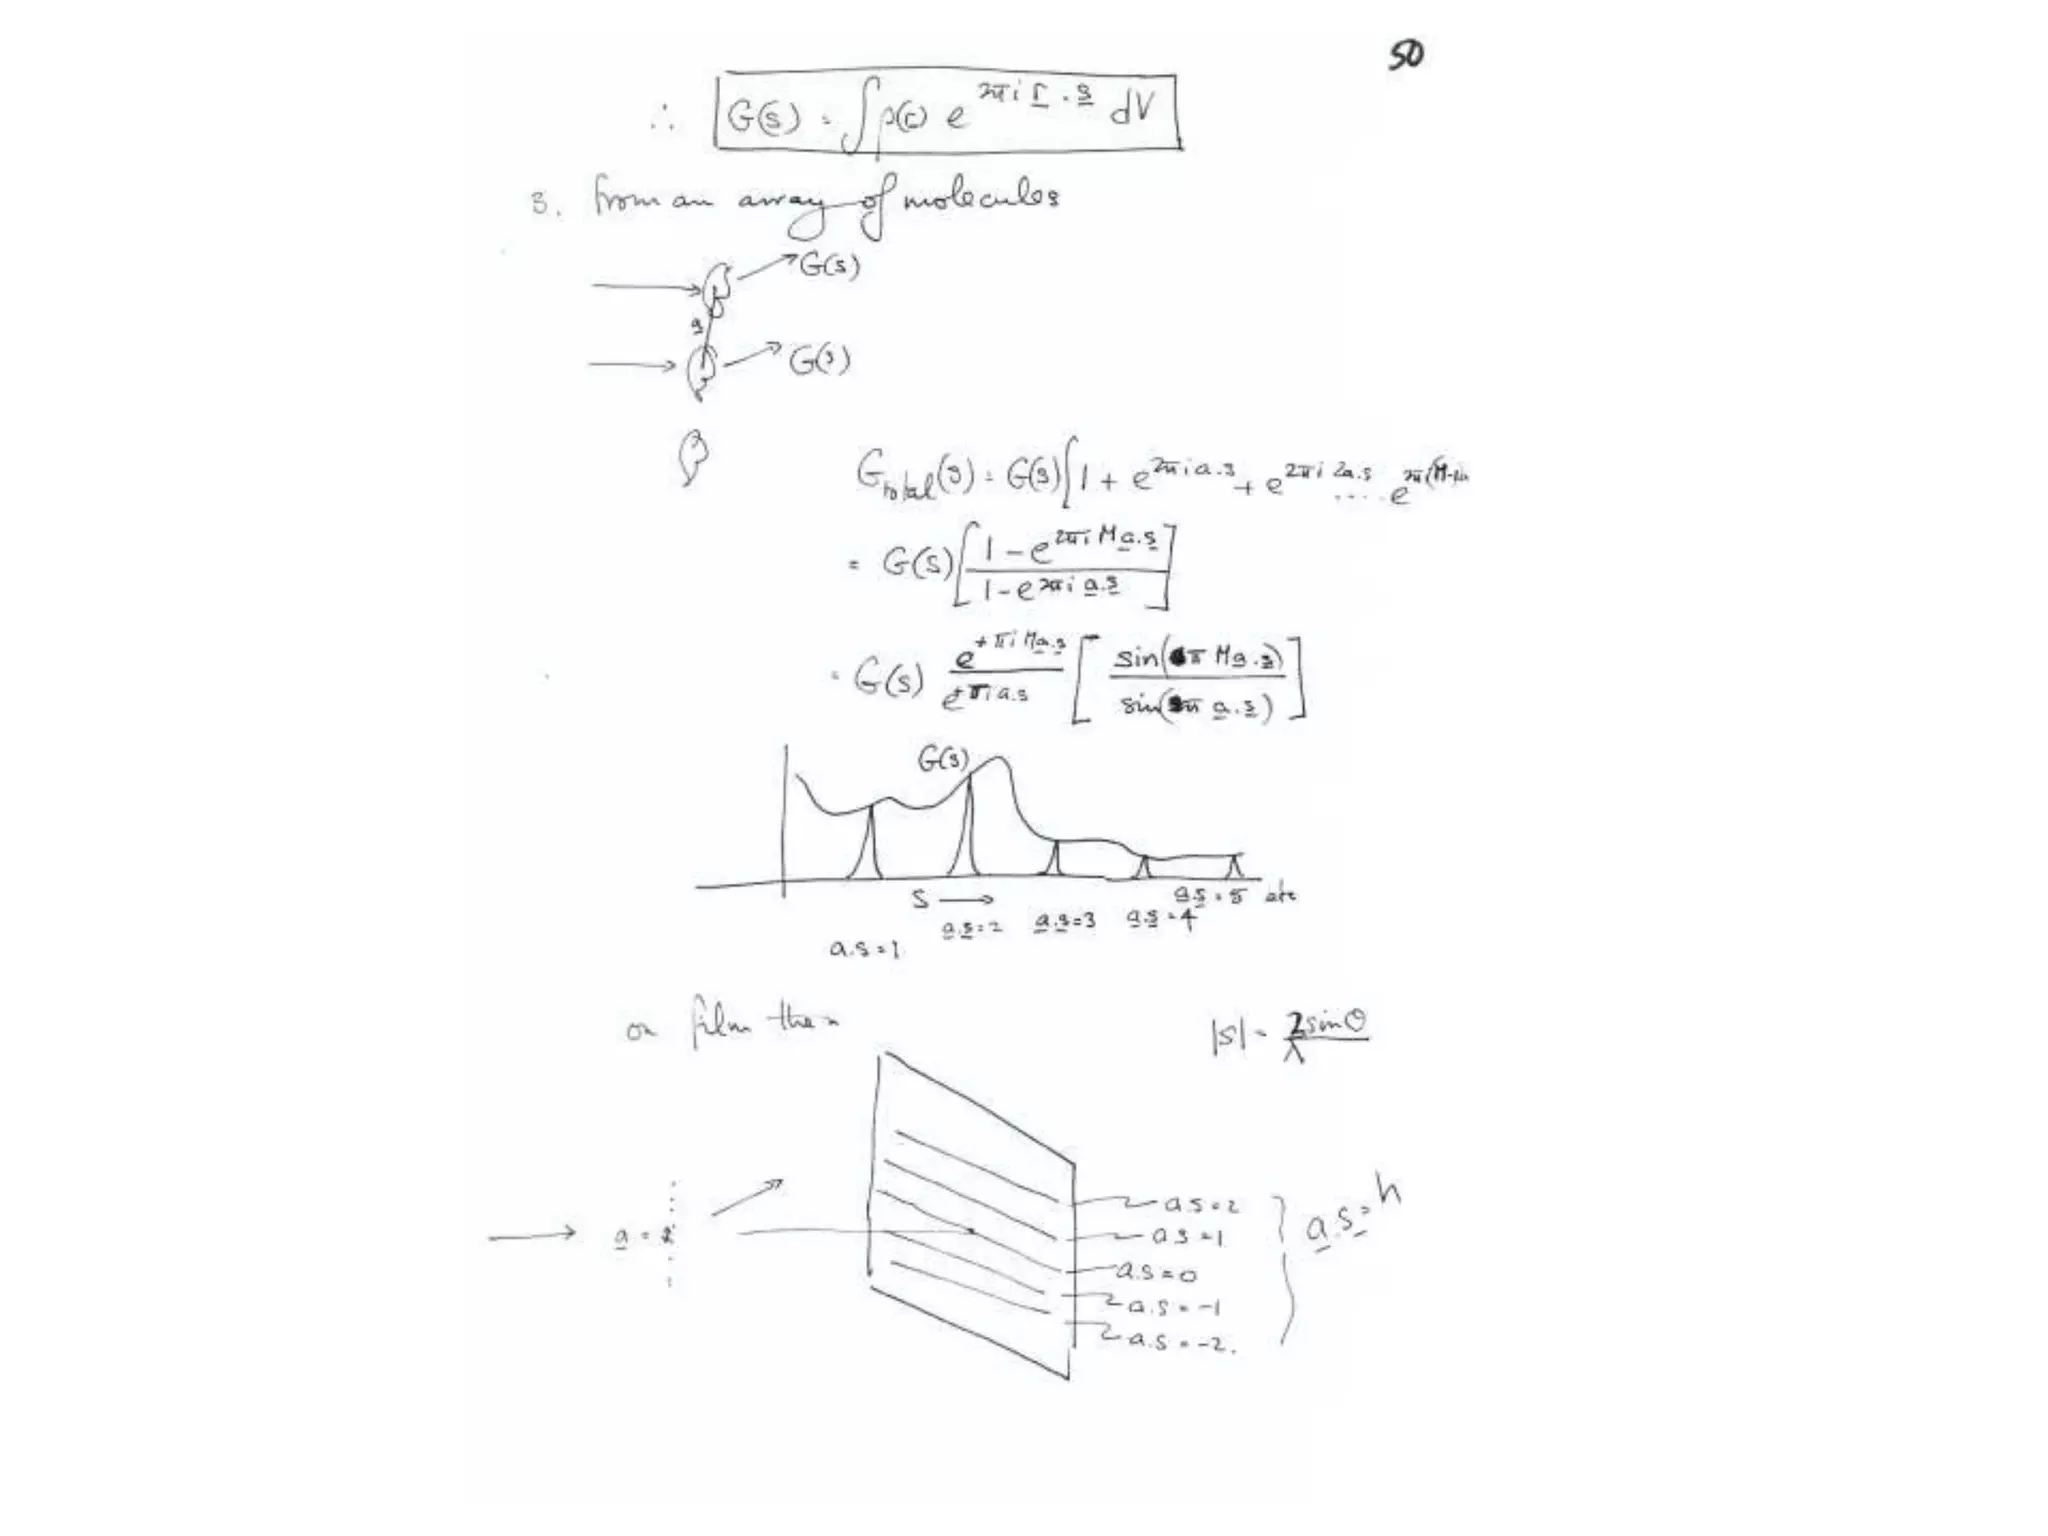 50
∴ G(s) = ∫ρ(r) e^{2πi r.s} dV
3. from an array of molecules
G(s)
a
G(s)
G_total(s) = G(s)[1 + e^{2πi a.s} + e^{2πi 2a.s} .... e^{2πi(M-1)a
= G(s)[1 - e^{2πi M a.s} / 1 - e^{2πi a.s}]
= G(s) e^{+πi M a.s} / e^{+πi a.s} [sin(π M a.s) / sin(π a.s)]
G(s)
s →
a.s = 1
a.s = 2
a.s = 3
a.s = 4
a.s = 5 etc
on film then
|s| = 2sinθ / λ
a =
a.s = 2
a.s = 1
a.s = 0
a.s = -1
a.s = -2.
a.s = h